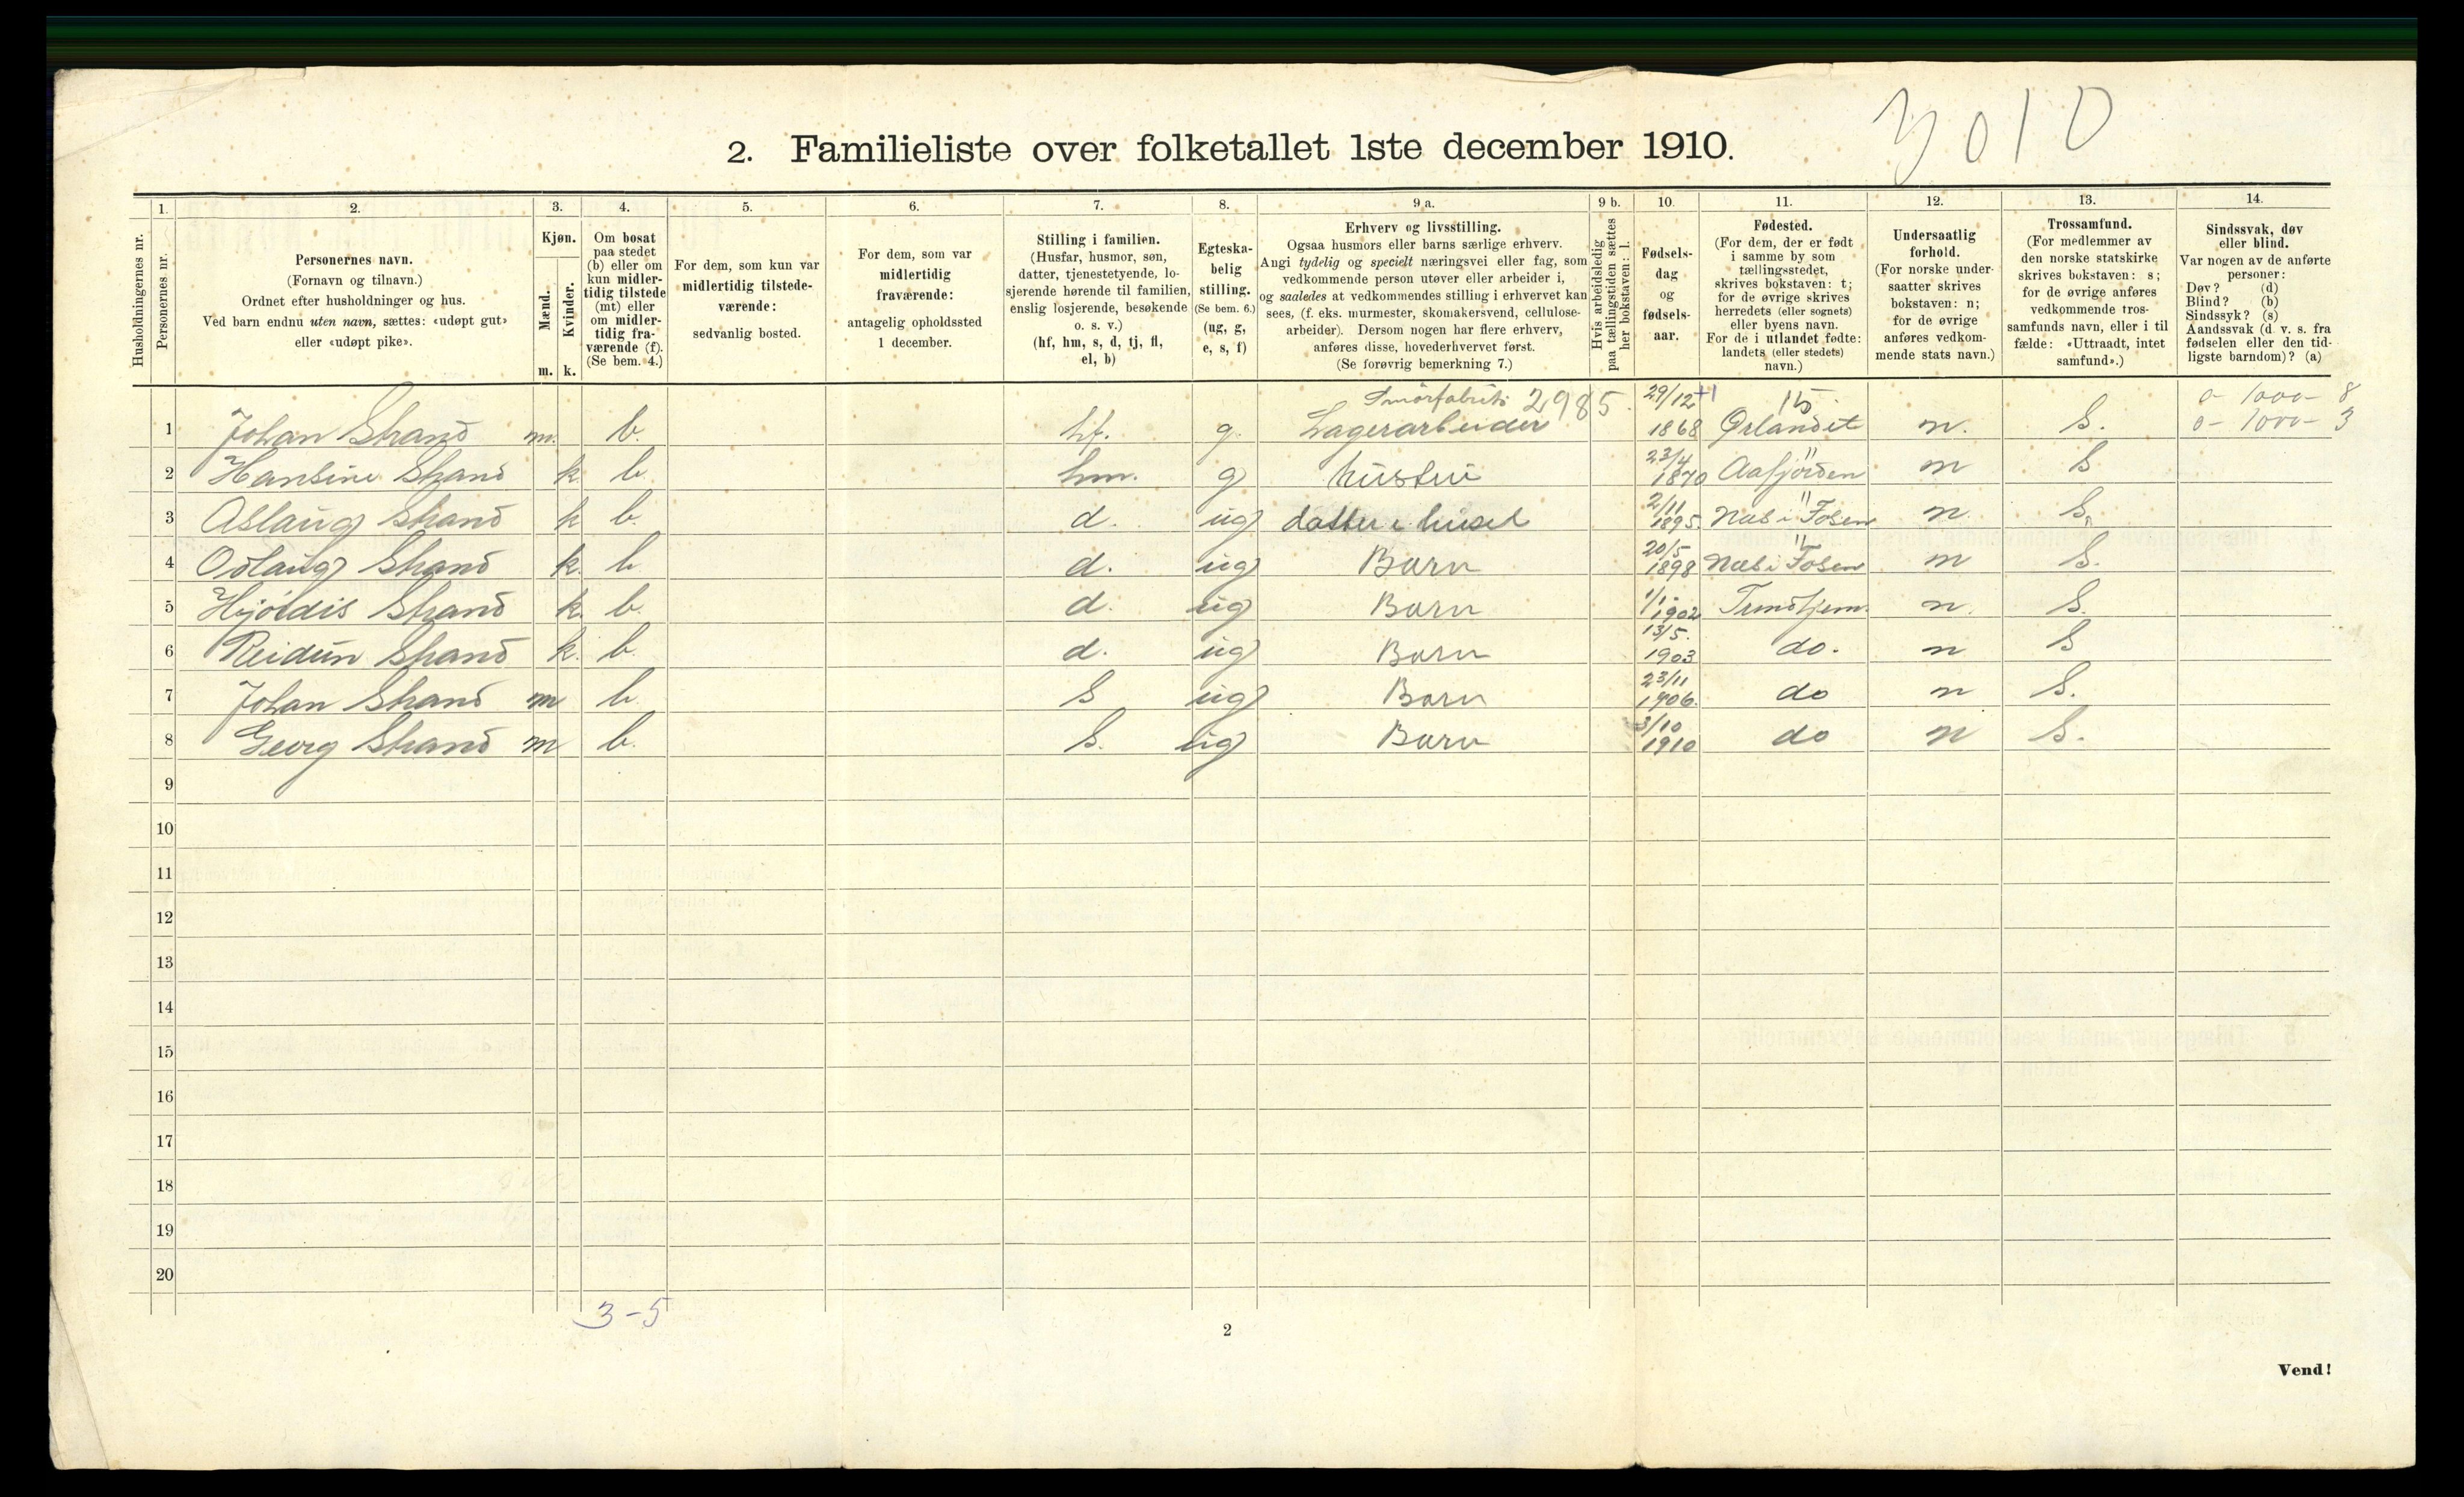 3010
2. Familieliste over folketallet 1ste december 1910.
1. 2. 3. 4. 5. 6. 7. 8. 9 a. 9 b. 10. 11. 12. 13. 14.
Husholdningernes nr.
Personernes nr.
Personernes navn.
(Fornavn og tilnavn.)
Ordnet efter husholdninger og hus.
Ved barn endnu uten navn, sættes: «udøpt gut»
eller «udøpt pike».
Kjøn.
Mænd.
Kvinder.
m. k.
Om bosat
paa stedet
(b) eller om
kun midler-
tidig tilstede
(mt) eller
om midler-
tidig fra-
værende (f).
(Se bem. 4.)
For dem, som kun var
midlertidig tilstede-
værende:
sedvanlig bosted.
For dem, som var
midlertidig
fraværende:
antagelig opholdssted
1 december.
Stilling i familien.
(Husfar, husmor, søn,
datter, tjenestetyende, lo-
sjerende hørende til familien,
enslig losjerende, besøkende
o. s. v.)
(hf, hm, s, d, tj, fl,
el, b)
Egteska-
belig
stilling.
(Se bem. 6.)
(ug, g,
e, s, f)
Erhverv og livsstilling.
Ogsaa husmors eller barns særlige erhverv.
Angi tydelig og specielt næringsvei eller fag, som
vedkommende person utøver eller arbeider i,
og saaledes at vedkommendes stilling i erhvervet kan
sees, (f. eks. murmester, skomakersvend, cellulose-
arbeider). Dersom nogen har flere erhverv,
anføres disse, hovederhvervet først.
(Se forøvrig bemerkning 7.)
Hvis arbeidsledig
paa tællingstiden sættes
her bokstaven: l.
Fødsels-
dag
og
fødsels-
aar.
Fødested.
(For dem, der er født
i samme by som
tællingsstedet,
skrives bokstaven: t;
for de øvrige skrives
herredets (eller sognets)
eller byens navn.
For de i utlandet fødte:
landets (eller stedets)
navn.)
Undersaatlig
forhold.
(For norske under-
saatter skrives
bokstaven: n;
for de øvrige
anføres vedkom-
mende stats navn.)
Trossamfund.
(For medlemmer av
den norske statskirke
skrives bokstaven: s;
for de øvrige anføres
vedkommende tros-
samfunds navn, eller i til
fælde: «Uttraadt, intet
samfund».)
Sindssvak, døv
eller blind.
Var nogen av de anførte
personer:
Døv? (d)
Blind? (b)
Sindssyk? (s)
Aandssvak (d. v. s. fra
fødselen eller den tid-
ligste barndom)? (a)
Smørfabrik 2985. 29/12 15 0 - 1000 - 8
1 Johan Strand m. b. hf. g. Lagerarbeider 1868 Ørlandet n. S. 0 - 1000 - 3
2 Hansine Strand k. b. hm. g hustru 23/4 1870 Aafjorden n S
3 Aslaug Strand k b. d. ug datter i huset 2/11 1895. Næs i Fosen n. S.
4 Odlaug Strand k. b d. ug Barn 20/5 1898 Næs i Fosen n S.
5 Hjördis Strand k. b. d. ug Barn 1/1 1902 Trondhjem. n. S.
6 Reidun Strand k. b. d. ug Barn 13/5. 1903 do. n S
7 Johan Strand m b. S ug Barn 23/11 1906. do n S.
8 Georg Strand m b. S. ug Barn 3/10 1910 do n S.
9
10
11
12
13
14
15
16
17
18
19
20
3-5
2
Vend!